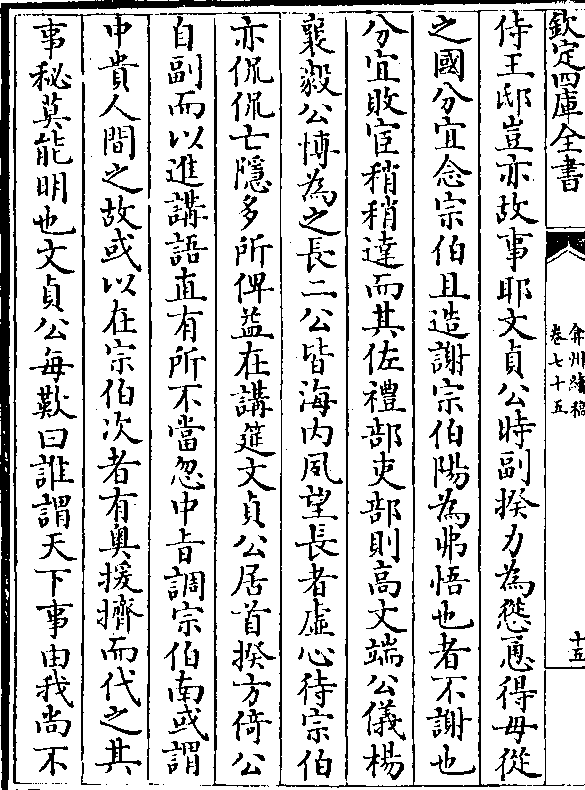 欽定四庫全書
弇州續稿
卷七十五
十五
侍王邸豈亦故事耶文貞公時副揆力為慫恿得毋從
之國分宜念宗伯且造謝宗伯陽為弗悟也者不謝也
分宜敗宦稍稍達而其佐禮部吏部則高文端公儀楊
襄毅公博為之長二公皆海内風望長者虛心待宗伯
亦侃侃亡隱多所俾益在講筵文貞公居首揆方倚公
自副而以進講語直有所不當忽中㫖調宗伯南或謂
中貴人間之故或以在宗伯次者有奥援擠而代之其
事秘莫能明也文貞公每歎曰誰謂天下事由我尚不